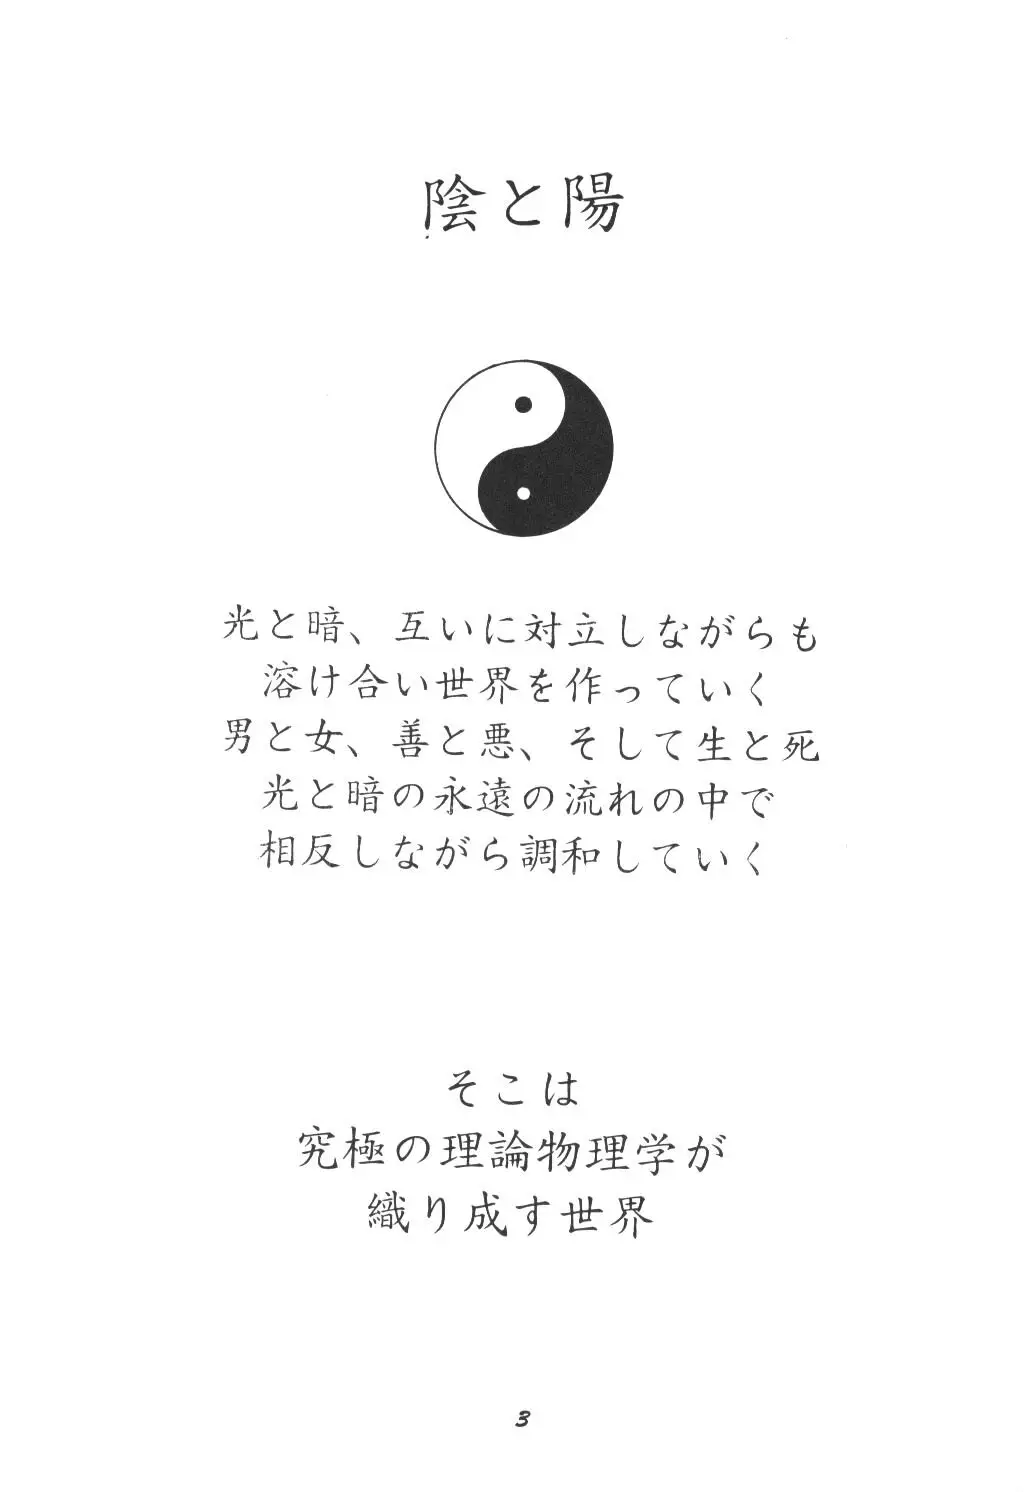 陰と陽
光と暗、互いに対立しながらも
溶け合い世界を作っていく
男と女、善と悪、そして生と死
光と暗の永遠の流れの中で
相反しながら調和していく
そこは
究極の理論物理学が
織り成す世界
3